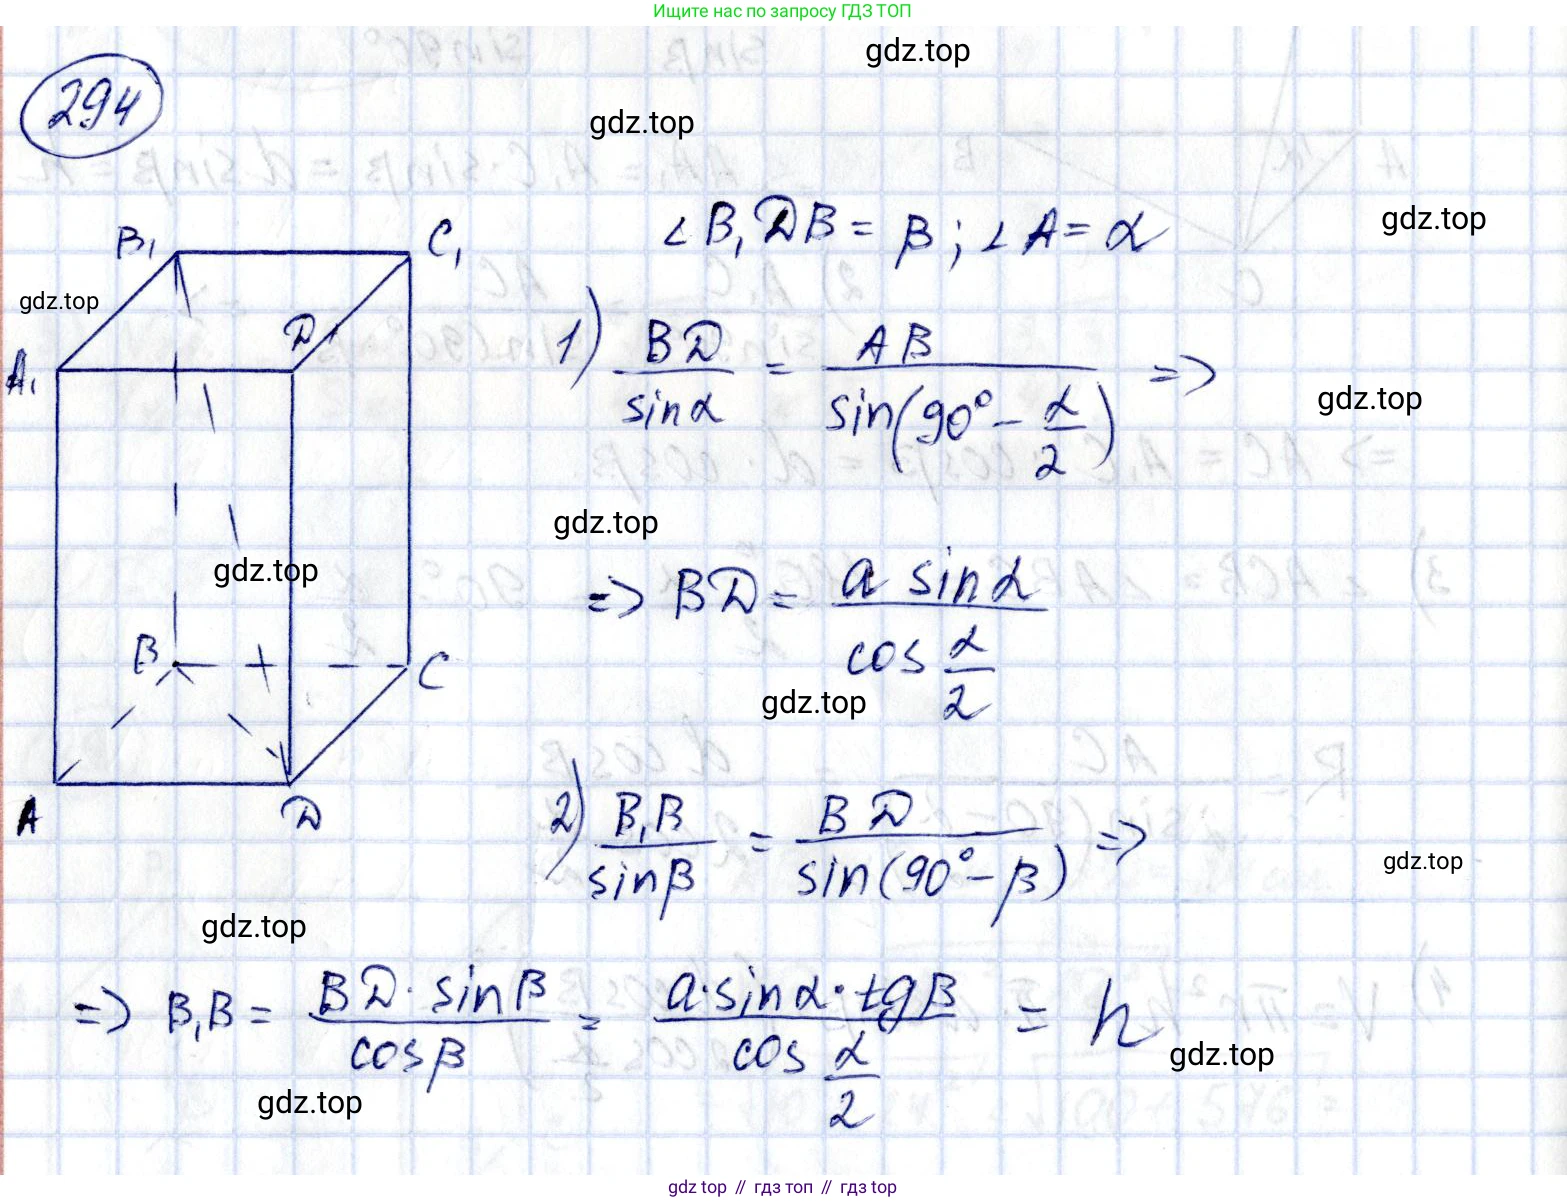 Ищите нас по запросу ГДЗ ТОП
gdz.top
294
gdz.top
∠B₁DB = β; ∠A = α
gdz.top
B₁
C₁
gdz.top
D₁
A₁
1) BD/sinα = AB/sin(90° − α/2) =>
gdz.top
gdz.top
gdz.top
=> BD = a sinα / cos α/2
B
C
gdz.top
A
D
2) B₁B/sinβ = BD/sin(90° − β) =>
gdz.top
gdz.top
=> B₁B = BD · sinβ / cosβ = a · sinα · tgβ / cos α/2 = h
gdz.top
gdz.top
gdz.top // гдз топ // гдз top